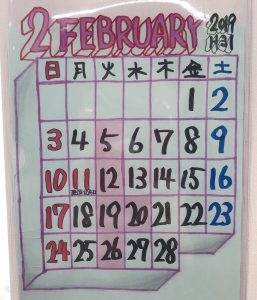 2 FEBRUARY 2019
H31
日 月 火 水 木 金 土
1 2
3 4 5 6 7 8 9
10 11 12 13 14 15 16
17 18 19 20 21 22 23
24 25 26 27 28